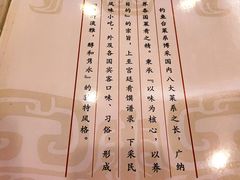 钓鱼台菜系博采国内八大菜系之长，广纳
界各国菜肴之精。秉承『以味为核心，以养
目的』的宗旨，上至宫廷肴馔谱录，下采民
风味小吃，外及各国宾客口味、习俗，形成
淡雅，醇和隽永』的独特风格。